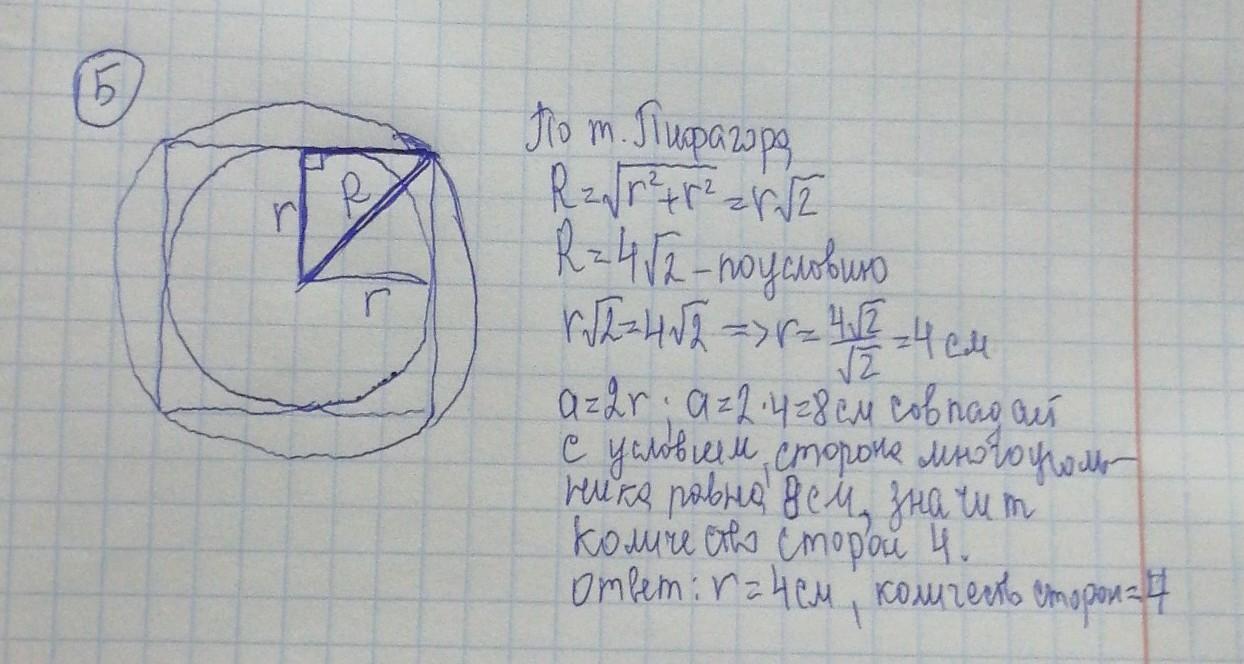 5
По т. Пифагора
R=√r²+r² =r√2
R=4√2 – по условию
r√2=4√2 => r= 4√2/√2 =4 см
a=2r; a=2·4=8 см совпадает
с условием, сторона многоуголь–
ника равна 8 см, значит
количество сторон 4.
Ответ: r=4 см, количество сторон=4
r
R
r